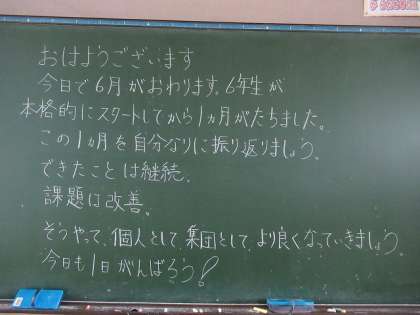 おはようございます
今日で6月がおわります。6年生が
本格的にスタートしてから1ヵ月がたちました。
この1ヵ月を自分なりに振り返りましょう。
できたことは継続。
課題は改善。
そうやって、個人として、集団として、より良くなっていきましょう。
今日も1日がんばろう!